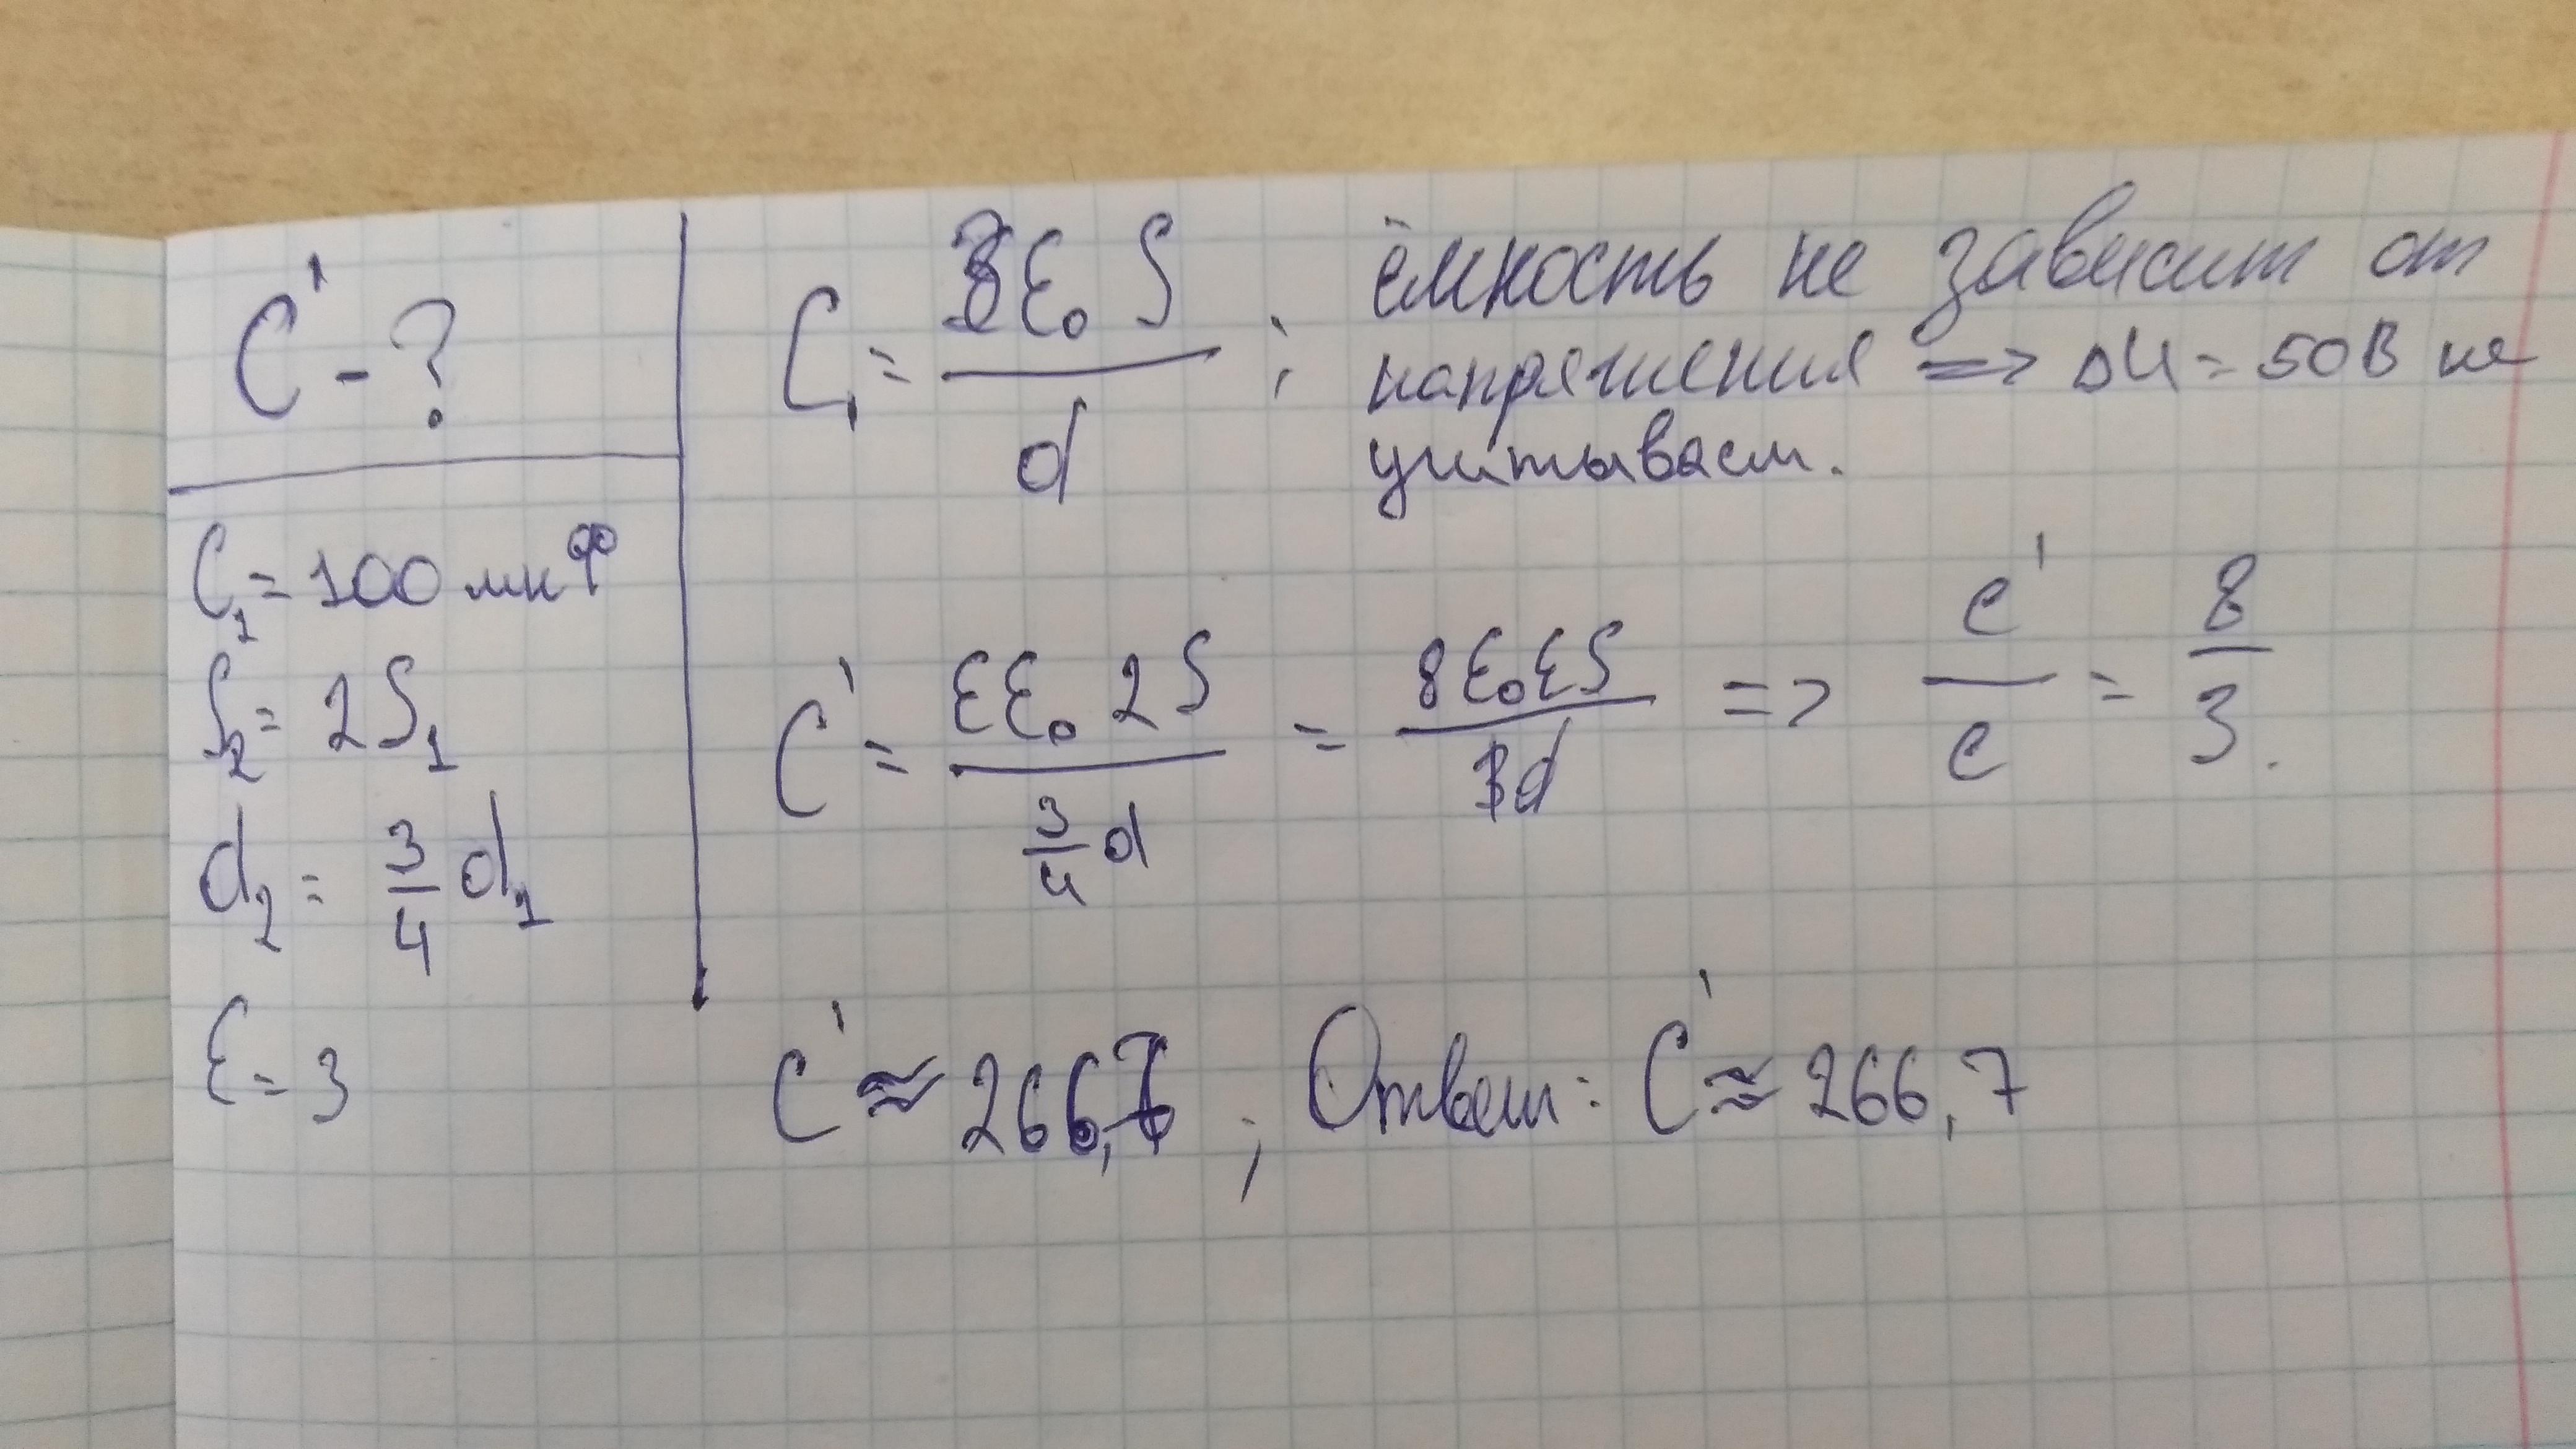 C' - ?
C₁ = 100 мкФ
S₂ = 2S₁
d₂ = 3/4 d₁
ε = 3
C₁ = εε₀S / d ; ёмкость не зависит от
напряжения => ΔU = 50В не
учитываем.
C' = εε₀2S / (3/4 d) = 8ε₀εS / 3d => C'/C = 8/3.
C' ≈ 266,7 ; Ответ: C' ≈ 266,7